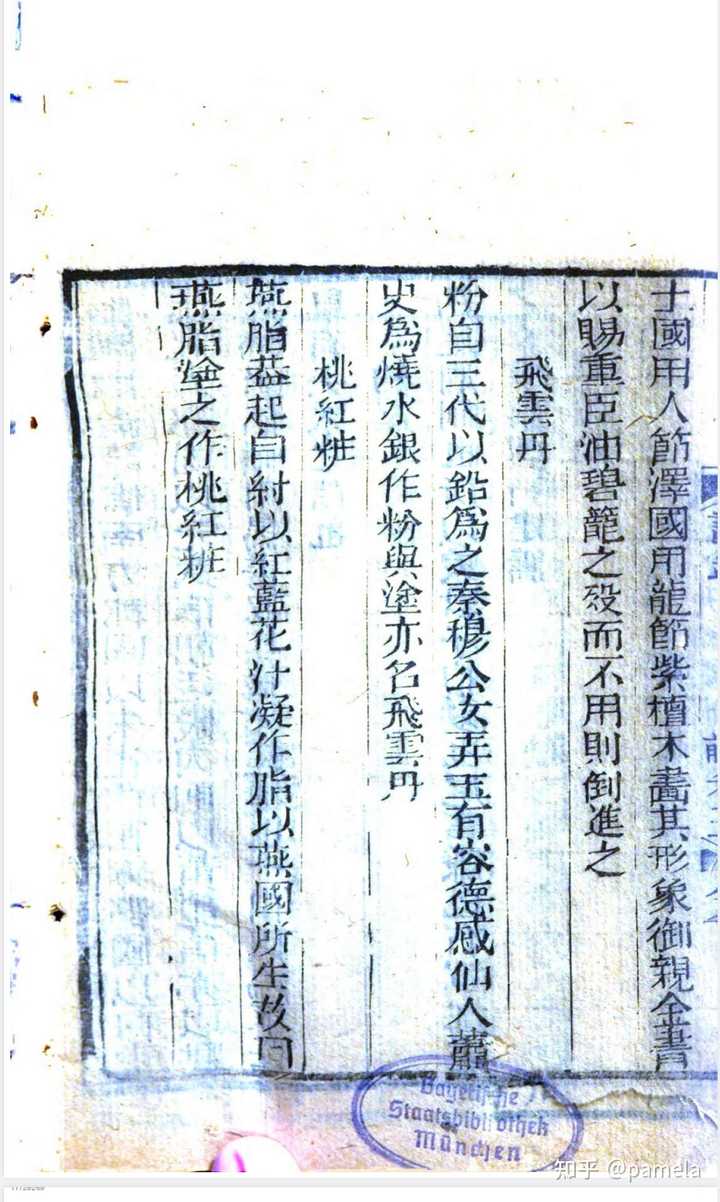 土國用人節澤國用龍節紫檀木畵其形象御親金書
以賜重臣油碧籠之殁而不用則倒進之
飛雲丹
粉自三代以鉛爲之秦穆公女弄玉有容德感仙人蕭
史爲燒水銀作粉與塗亦名飛雲丹
桃紅粧
燕脂葢起自紂以紅藍花汁凝作脂以燕國所生故曰
燕脂塗之作桃紅粧
Bayerische
Staatsbibliothek
München
知乎 @pamela